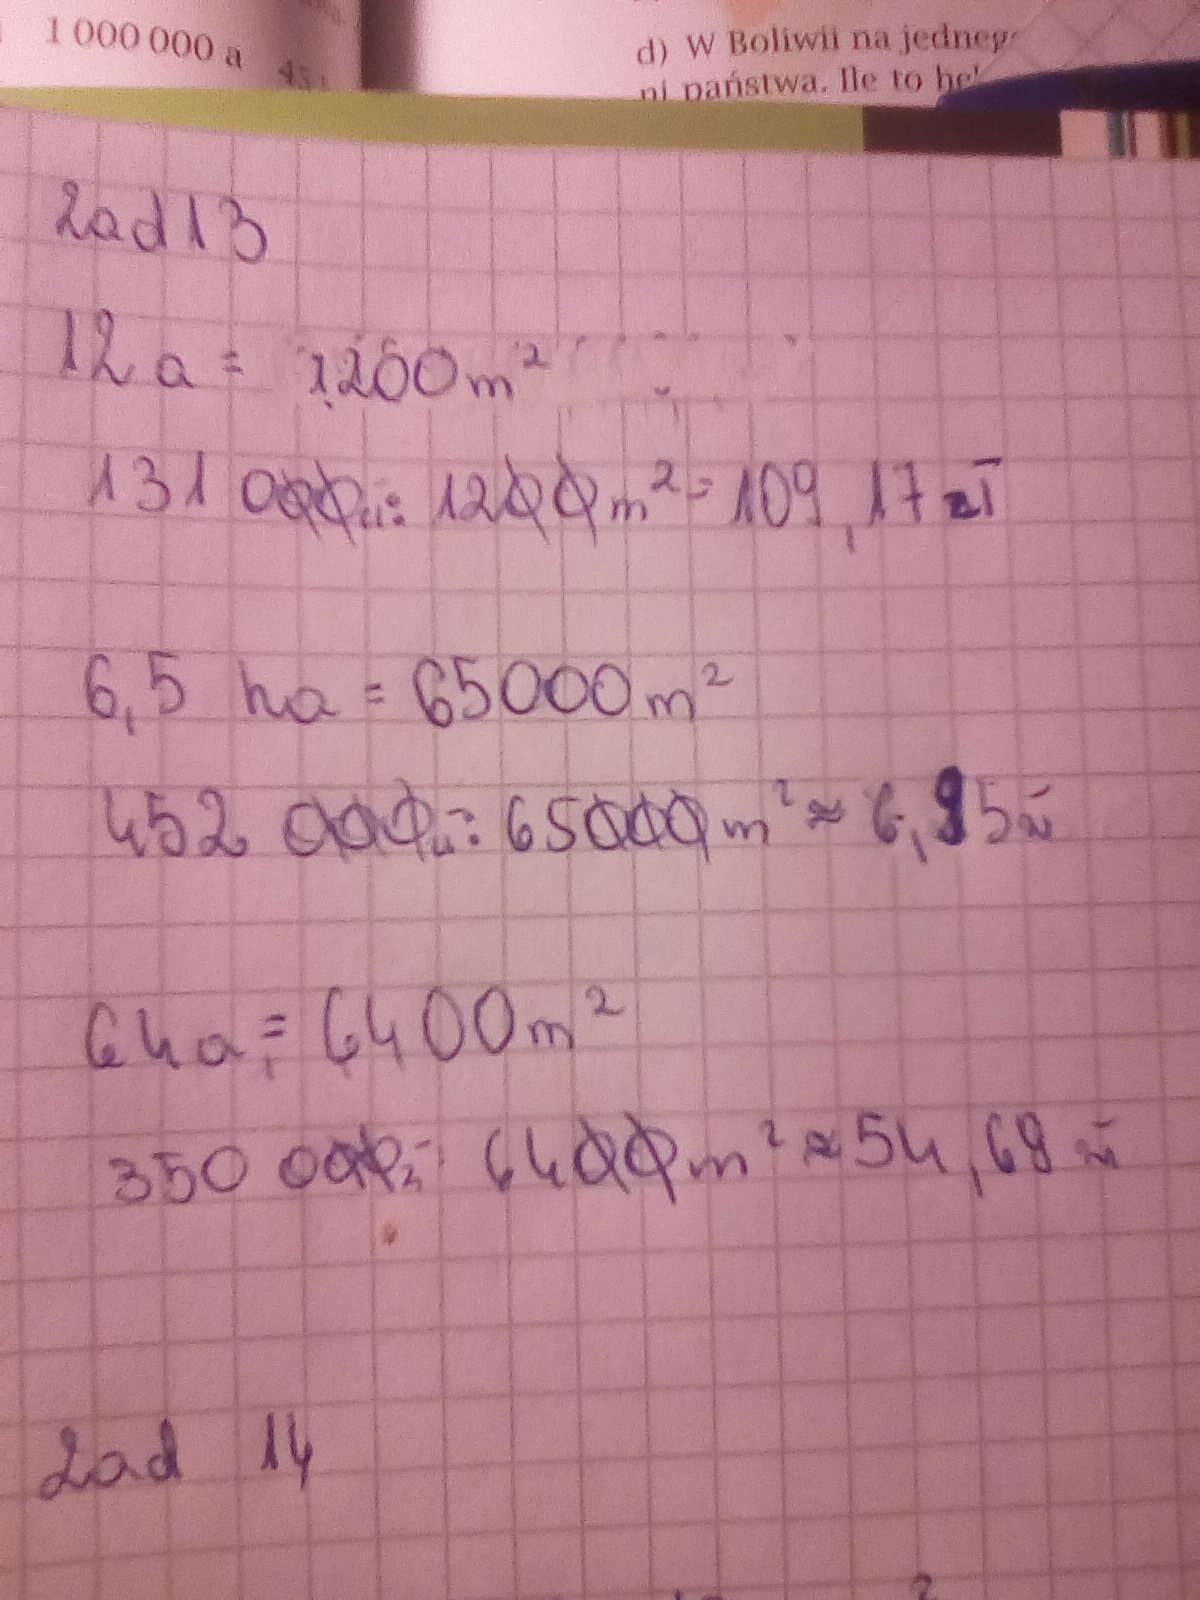 1 000 000 a
d) W Boliwii na jedneg
ni państwa. Ile to he
Zad 13
12 a = 1200 m²
131 000 zł : 1200 m² = 109,17 zł
6,5 ha = 65000 m²
452 000 zł : 65000 m² ≈ 6,95 zł
64 a = 6400 m²
350 000 zł : 6400 m² ≈ 54,69 zł
Zad 14
2